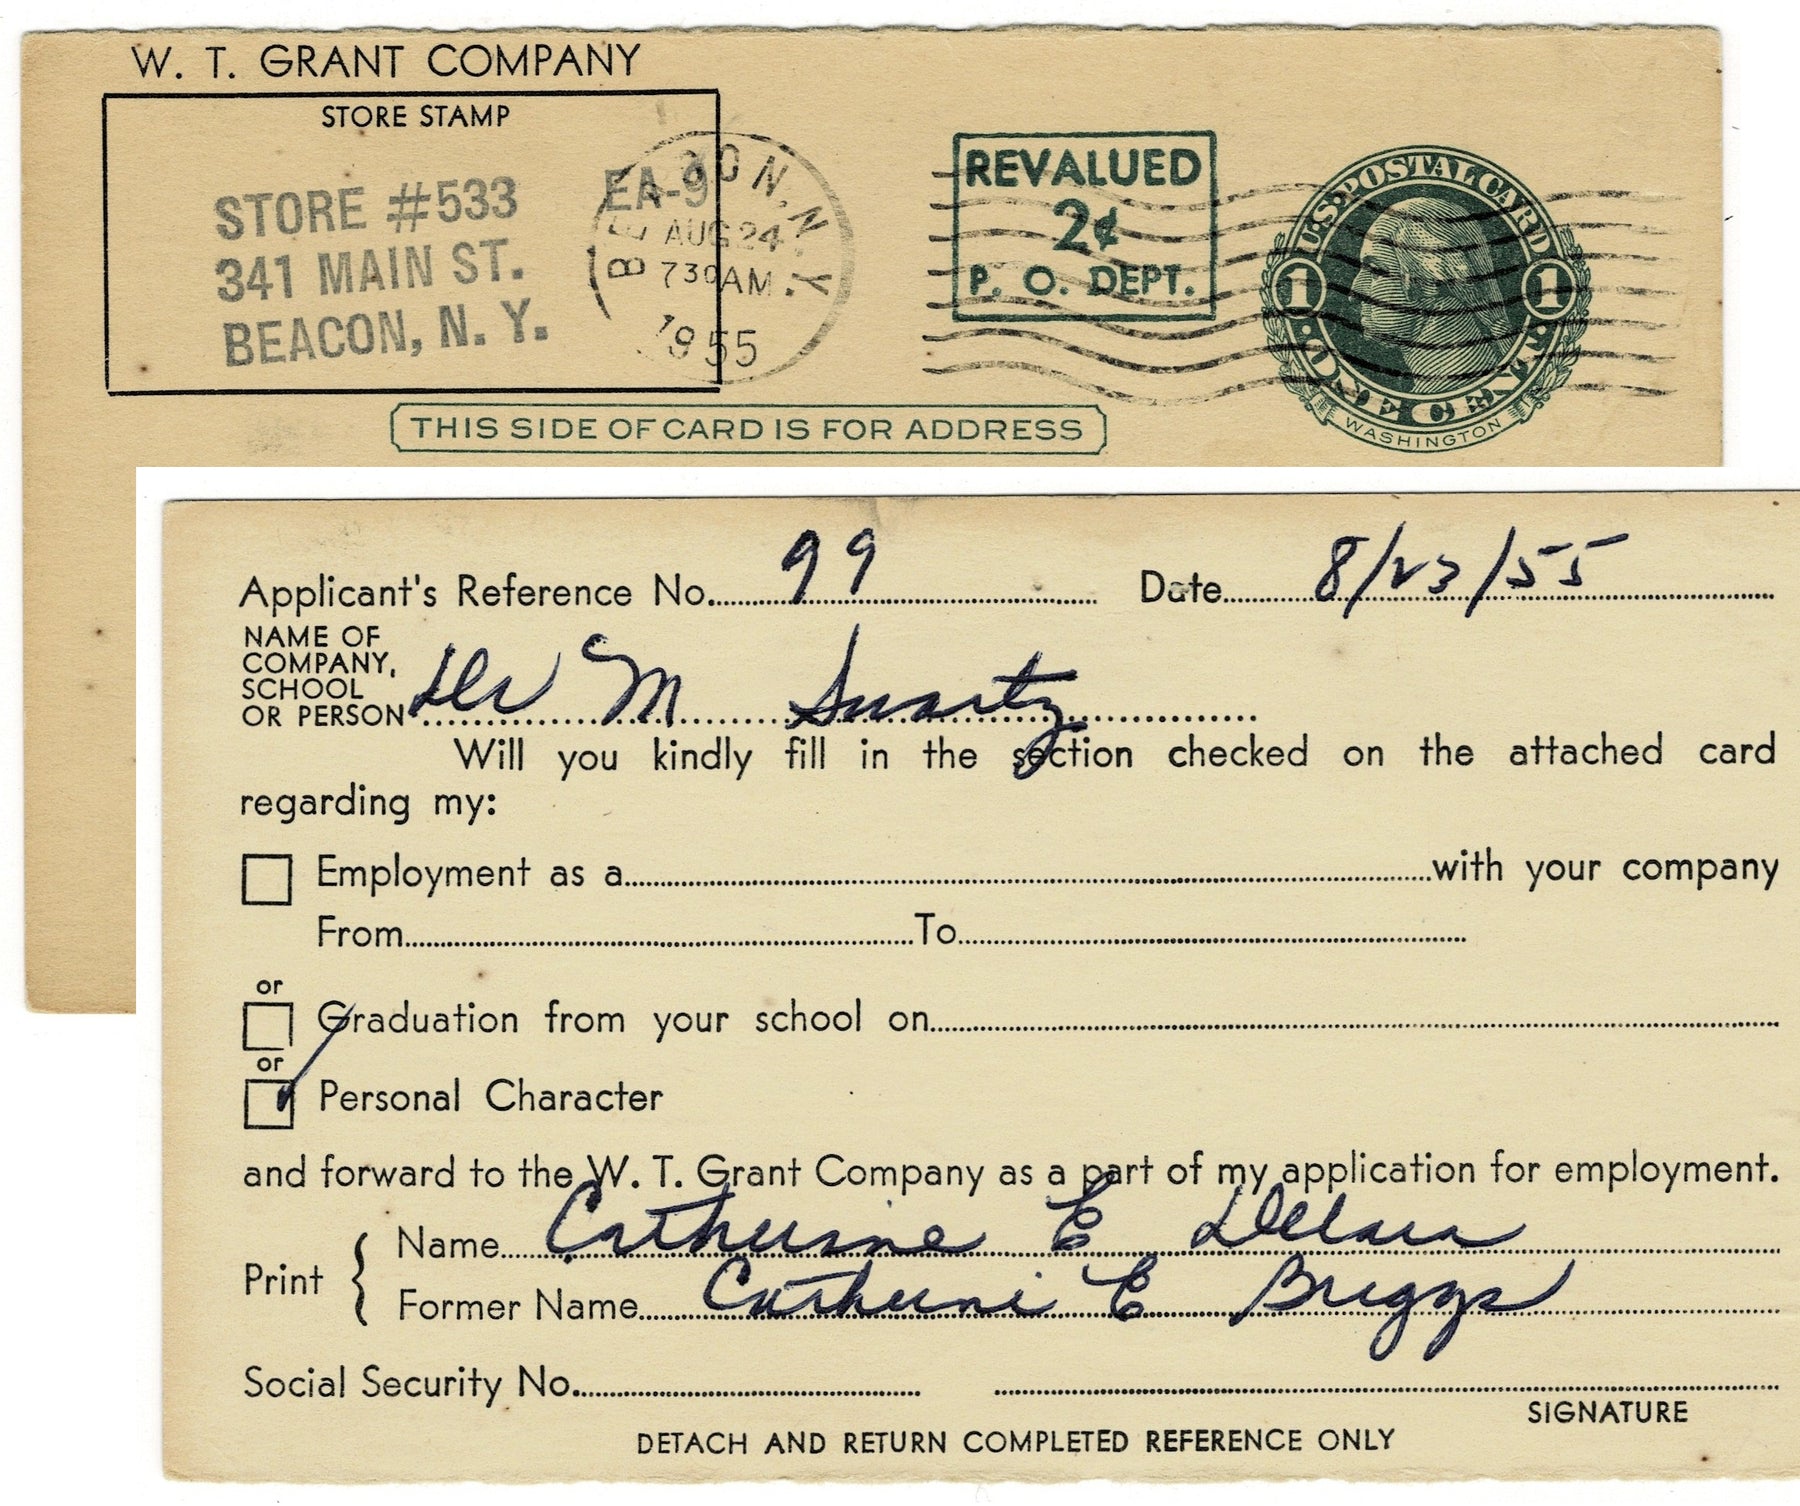 W. T. GRANT COMPANY
STORE STAMP
STORE #533 EA-9
341 MAIN ST.
BEACON, N. Y.
BEACON, N.Y.
AUG 24
730 AM
1955
REVALUED
2¢
P. O. DEPT.
U.S. POSTAL CARD
1 1
ONE CENT
WASHINGTON
THIS SIDE OF CARD IS FOR ADDRESS
Applicant's Reference No. 99 Date 8/23/55
NAME OF
COMPANY,
SCHOOL
OR PERSON Dr M Swartz
Will you kindly fill in the section checked on the attached card
regarding my:
Employment as a with your company
From To
or
Graduation from your school on
or
Personal Character
and forward to the W. T. Grant Company as a part of my application for employment.
Name Catherine E
Print
Former Name Catherine E Briggs
Social Security No.
SIGNATURE
DETACH AND RETURN COMPLETED REFERENCE ONLY